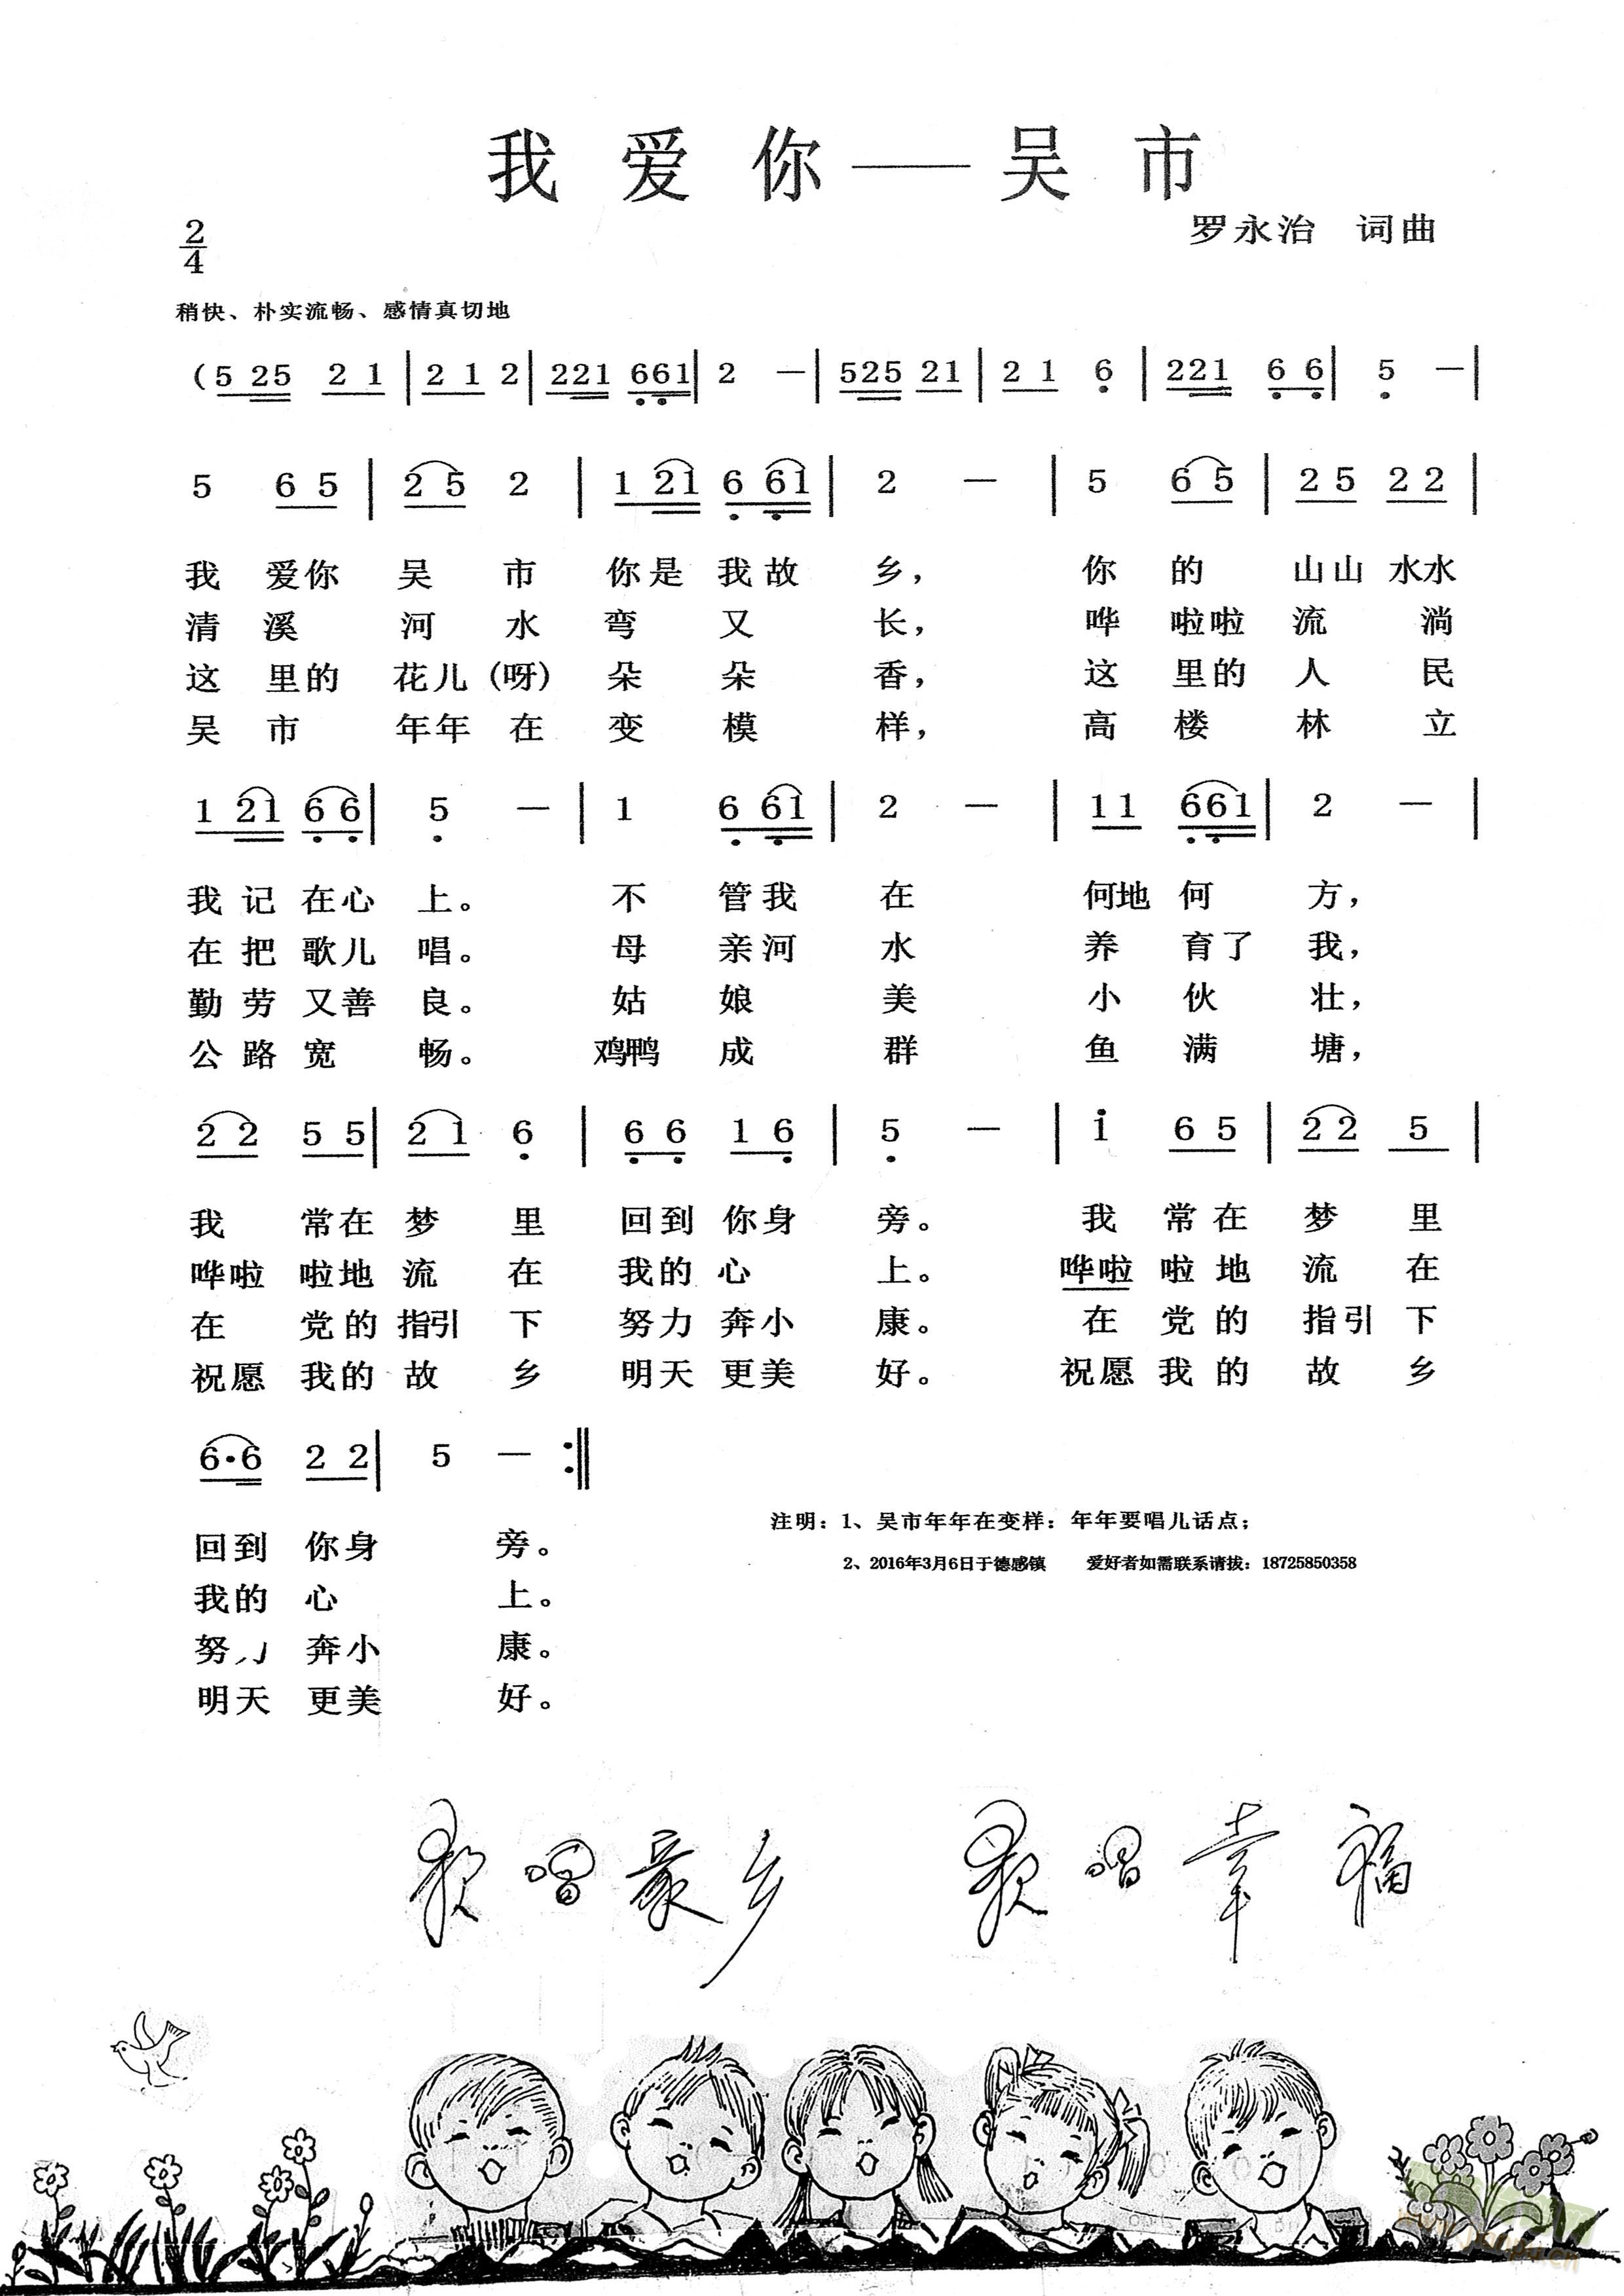 我爱你——吴市
2/4
罗永治 词曲
稍快、朴实流畅、感情真切地
(5 25 2 1 | 2 1 2 | 221 661 | 2 — | 525 21 | 2 1 6 | 221 6 6 | 5 — |
5 6 5 | 2 5 2 | 1 21 6 61 | 2 — | 5 6 5 | 2 5 2 2 |
我 爱你 吴 市 你是 我故 乡， 你 的 山山 水水
清 溪 河 水 弯 又 长， 哗 啦啦 流 淌
这 里的 花儿 (呀) 朵 朵 香， 这 里的 人 民
吴 市 年年 在 变 模 样， 高 楼 林 立
1 21 6 6 | 5 — | 1 6 61 | 2 — | 11 661 | 2 — |
我 记 在心 上。 不 管我 在 何地 何 方，
在 把 歌儿 唱。 母 亲河 水 养 育了 我，
勤 劳 又善 良。 姑 娘 美 小 伙 壮，
公 路 宽 畅。 鸡鸭 成 群 鱼 满 塘，
2 2 5 5 | 2 1 6 | 6 6 1 6 | 5 — | i 6 5 | 2 2 5 |
我 常在 梦 里 回到 你身 旁。 我 常在 梦 里
哗啦 啦地 流 在 我的 心 上。 哗啦 啦地 流 在
在 党的 指引 下 努力 奔小 康。 在 党的 指引 下
祝愿 我的 故 乡 明天 更美 好。 祝愿 我的 故 乡
6·6 2 2 | 5 — :||
回到 你身 旁。
我的 心 上。
努力 奔小 康。
明天 更美 好。
注明：1、吴市年年在变样：年年要唱儿话点；
2、2016年3月6日于德感镇 爱好者如需联系请拔：18725850358
歌唱家乡 歌唱幸福